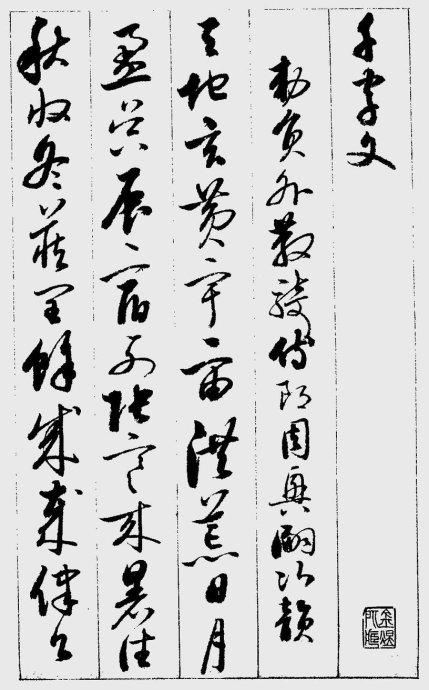 千字文
勅員外散騎侍郎周興嗣次韻
天地玄黄宇宙洪荒日月
盈昃辰宿列張寒来暑往
秋收冬蔵閏餘成歲律呂